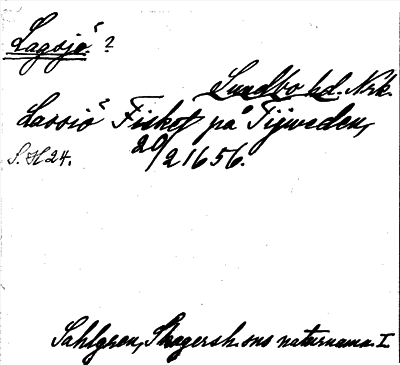 Lagsjö ?
Sundbo hd. Nrk.
Lassiö Fiskot på Tijweden,
S. H 24. 20/2 1656.
Sahlgren, Skagersh. sns naturnamn I